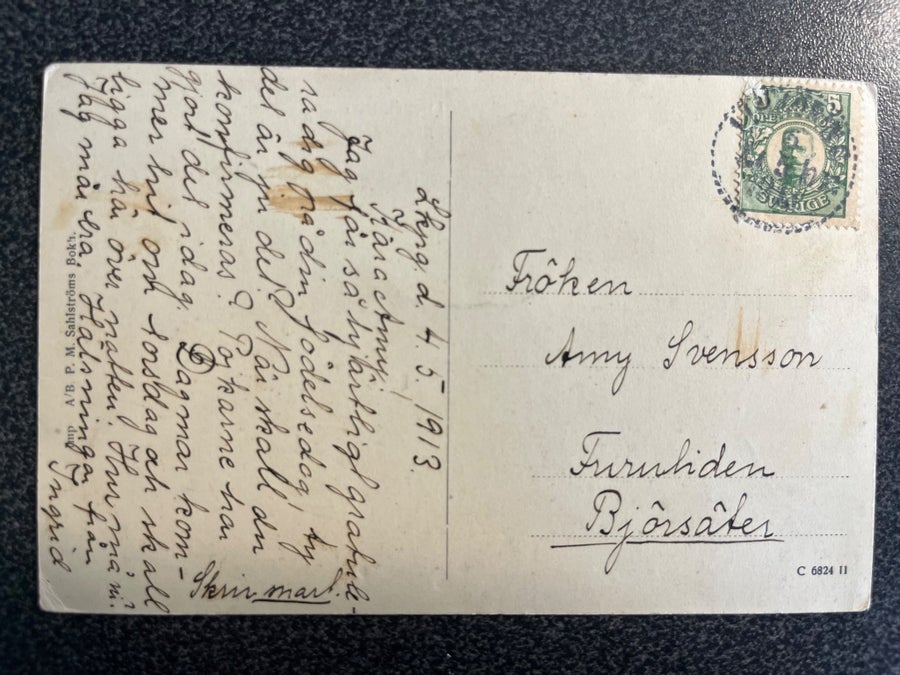 Lkpg. d. 4.5, 1913.
Kära Amy!
Jag får så hjärtligt gratul-
ra dig på din födelsedag, ty
det är ju det? När skall du
komfirmeras? Pojkarne har
gjort det idag. Dagmar kom-
mer hit om torsdag och skall
ligga här över natten. Hur må ni?
Jag mår bra, Hälsningar från
Ingrid
Skriv snart.
Imp A/B P. M. Sahlströms Bokh.
5
SVERIGE
Fröken
Amy Svensson
Furuliden
Björsäter
C 6824 11